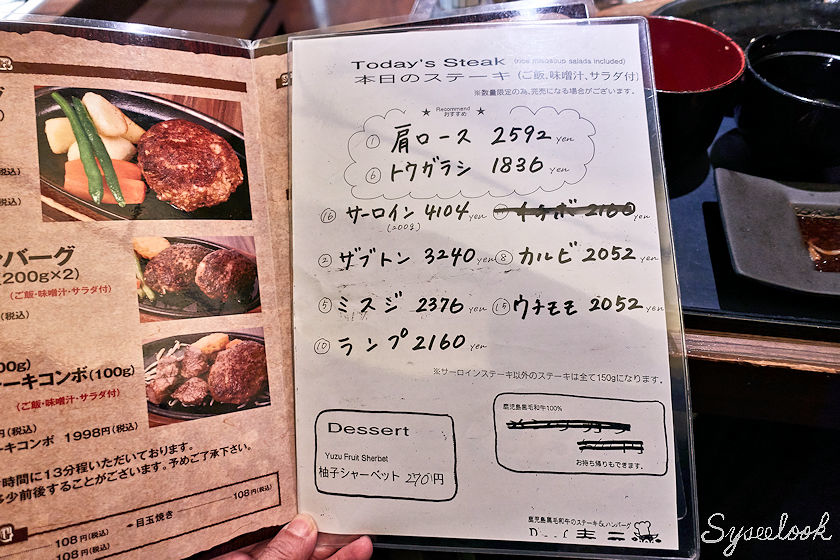 (税込)
(税込)
ンバーグ
(200g×2)
(ご飯・味噌汁・サラダ付)
(税込)
ーキコンボ(100g)
(ご飯・味噌汁・サラダ付)
円(税込)
ーキコンボ 1998円(税込)
時間に13分程いただいております。
多少前後することがございます。予めご了承下さい。
108円(税込)
目玉焼き 108円(税込)
108円(税込)
Today's Steak (rice misosoup salada included)
本日のステーキ (ご飯、味噌汁、サラダ付)
※数量限定の為、完売になる場合がございます。
★ Recommend ★
おすすめ
① 肩ロース 2592 yen
⑥ トウガラシ 1836 yen
⑯ サーロイン 4104 yen イチボ 2160 yen
(200g)
② ザブトン 3240 yen ⑧ カルビ 2052 yen
⑤ ミスジ 2376 yen ⑮ ウチモモ 2052 yen
⑩ ランプ 2160 yen
※サーロインステーキ以外のステーキは全て150gになります。
Dessert
Yuzu Fruit Sherbet
柚子シャーベット 270円
鹿児島黒毛和牛100%
お持ち帰りもできます。
鹿児島黒毛和牛のステーキ&ハンバーグ
Syseelook